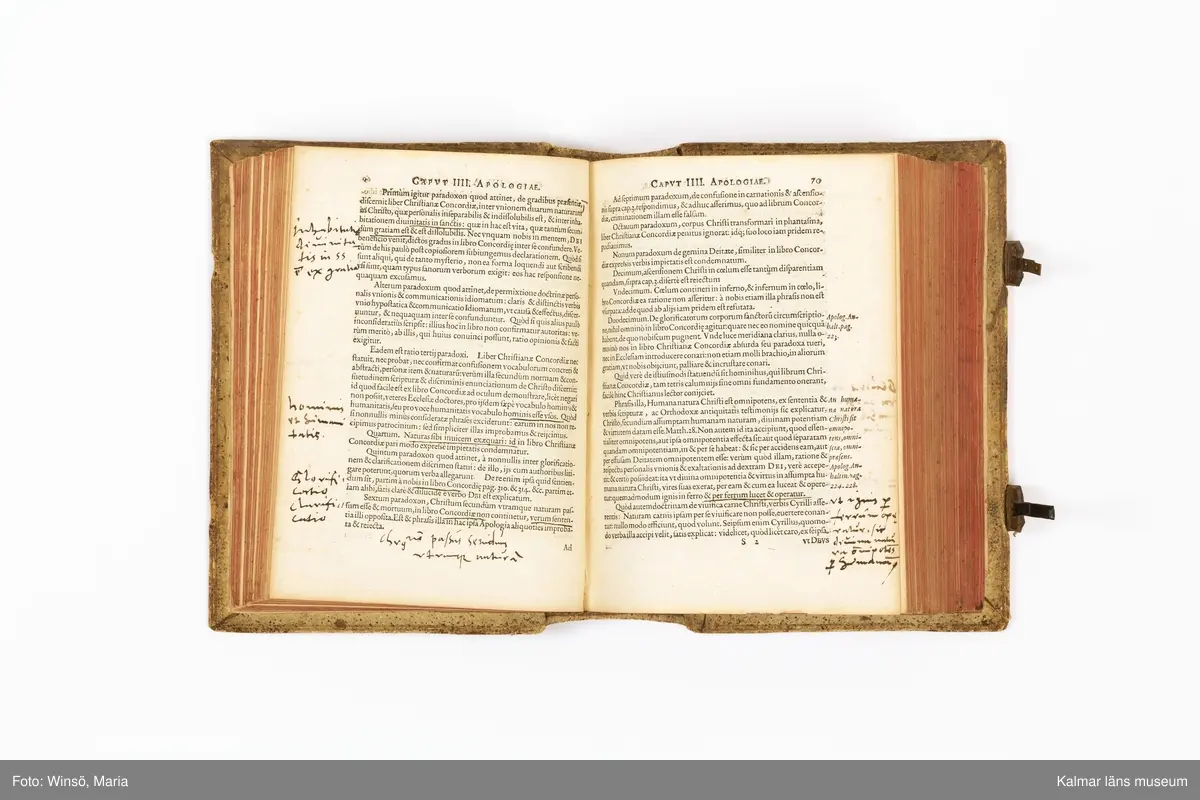 CAPVT IIII. APOLOGIAE.
Primùm igitur paradoxon quod attinet, de gradibus præsentiæ,
discernit liber Christianæ Concordiæ, inter vnionem duarum naturarum
in Christo, quæ personalis inseparabilis & indissolubilis est, & inter inha-
bitationem diuinitatis in sanctis: quæ in hac est vita, quæ tantùm secun-
dum gratiam est & est dissolubilis. Nec vnquam nobis in mentem, DEI
beneficio venit, dictos gradus in libro Concordię inter se confundere. Ve-
rùm de his paulò pòst copiosiorem subiungemus declarationem. Quòd si
sunt aliqui, qui de tanto mysterio, non ea forma loquendi aut scribendi
vsi sint, quam typus sanorum verborum exigit: eos hac responsione ne-
quaquam excusamus.
Alterum paradoxum quod attinet, de permixtione doctrinæ perso-
nalis vnionis & communicationis idiomatum: claris & distinctis verbis
vnio hypostatica & communicatio Idiomatum, vt causa & effectus, distin-
guuntur, & nequaquam inter se confunduntur. Quòd si quis alius paulò
inconsideratiùs scripsit: illius hoc in libro non confirmatur autoritas: ve-
rùm meritò, ab illis, qui huius conuinci possunt, ratio opinionis & facti
exigitur.
Eadem est ratio tertij paradoxi. Liber Christianæ Concordiæ nec
statuit, nec probat, nec confirmat confusionem vocabulorum concreti &
abstracti, personæ item & naturæ: sed verùm illa secundùm normam & con-
suetudinem scripturæ & discriminis enunciationum de Christo discernit:
id quod facilè est ex libro Concordiæ ad oculum demonstrare, licèt negari
non possit, veteres Ecclesiæ doctores, pro ijsdem sæpè vocabulo hominis &
humanitatis, seu pro voce humanitatis vocabulo hominis esse vsos. Quòd
si nonnullis minùs consideratæ phrases exciderunt: earum in nos non re-
cipimus patrocinium: sed simpliciter illas improbamus & reijcimus.
Quartum. Naturas sibi inuicem exæquari: id in libro Christianæ
Concordiæ pari modo expressè impietatis condemnatur.
Quintum paradoxon quod attinet, à nonnullis inter glorificatio-
nem & clarificationem discrimen statui: de illo, ijs cum authoribus liti-
gare poterunt, quorum verba allegarunt. De re enim ipsa quid sentien-
dum sit, partim à nobis in libro Concordiæ pag. 310. & 314. &c. partim et-
iam alibi, satis clarè & dilucidè è verbo DEI est explicatum.
Sextum paradoxon, Christum secundùm vtramque naturam pas-
sum esse & mortuum, in libro Concordiæ non continetur, verùm senten-
tia illi opposita. Est & phrasis illa in hac ipsa Apologia aliquoties improba-
ta & reiecta.
Ad
inhabitatio
diuinita
tis in SS
ex gratia
hominis
et human
tatis.
Glorifi
catio
clarifi
catio
passus secundum
utramque naturam
CAPVT IIII. APOLOGIAE. 70
Ad septimum paradoxum, de confusione incarnationis & ascensio-
nis supra cap. 3. respondimus, & adhuc asserimus, quo ad librum Concor-
diæ, criminationem illam esse falsam.
Octauum paradoxum, corpus Christi transformari in phantasma,
liber Christianæ Concordiæ penitus ignorat: idq; suo loco iam pridem re-
pudiauimus.
Nonum paradoxum de gemina Deitate, similiter in libro Concor-
diæ expressis verbis impietatis est condemnatum.
Decimum, ascensionem Christi in cœlum esse tantùm disparentiam
quandam, supra cap. 3. disertè est reiectum
Vndecimum. Cœlum contineri in inferno, & infernum in cœlo, li-
bro Concordiæ ea ratione non asseritur: à nobis etiam illa phrasis non est
vsurpata: adde quod ab alijs iam pridem est refutata.
Duodecimum. De glorificatorum corporum sanctorū circumscriptio-
ne, nihil omninò in libro Concordię agitur: quare nec eo nomine quicquā
habent, de quo nobiscum pugnent. Vnde luce meridiana clarius, nulla o-
mninò nos in libro Concordiæ absurda seu paradoxa tueri,
nec in Ecclesiam introducere conari: non etiam molli brachio, in aliorum
gratiam, vt nobis obijciunt, palliare & incrustare conari.
Quid verè de istiusmodi statuendū sit hominibus, qui librum Chri-
stianæ Concordiæ, tam tetris calumnijs sine omni fundamento onerant,
facilè hinc Christianus lector conijciet.
Phrasis illa, Humana natura Christi est omnipotens, ex sententia &
verbis scripturæ, ac Orthodoxæ antiquitatis testimonijs sic explicatur,
Christo, secundùm assumptam humanam naturam, diuinam potentiam
& virtutem datam esse. Matth. 28. Non autem id ita accipiunt, quod essen-
tialiter omnipotens, aut ipsa omnipotentia effecta sit: aut quòd separatam
quandam omnipotentiam, in & per se habeat: & sic per accidens eam, aut
per effusam Deitatem omnipotentem esse: verùm quòd illam, ratione &
respectu personalis vnionis & exaltationis ad dextram DEI, verè accepe-
rit: & certò possideat: ita vt diuina omnipotentia & virtus in assumpta hu-
mana natura Christi, vires suas exerat, per eam & cum ea luceat & opere-
tur: quemadmodum ignis in ferro & per ferrum lucet & operatur.
Quod autem doctrinam de viuifica carne Christi, verbis Cyrilli asse-
rentis: Naturam carnis ipsam per se viuificare non posse, euertere conan-
tur: nullo modo efficiunt, quod volunt. Seipsum enim Cyrillus, quomo-
do verba illa accipi velit, satis explicat: videlicet, quòd licèt caro, ex seipsa
S 2 vt DEVS
Apolog. An-
halt. pag.
223.
An huma-
na natura
Christi sit
omnipo-
tens, omni-
scia, omni-
præsens.
Apolog. An-
haltin. pag.
224. 228.
ut ignis per
ferrum ope
ratur, sic
diuina natu
ra omnipotens
per humanam
Foto: Winsö, Maria
Kalmar läns museum